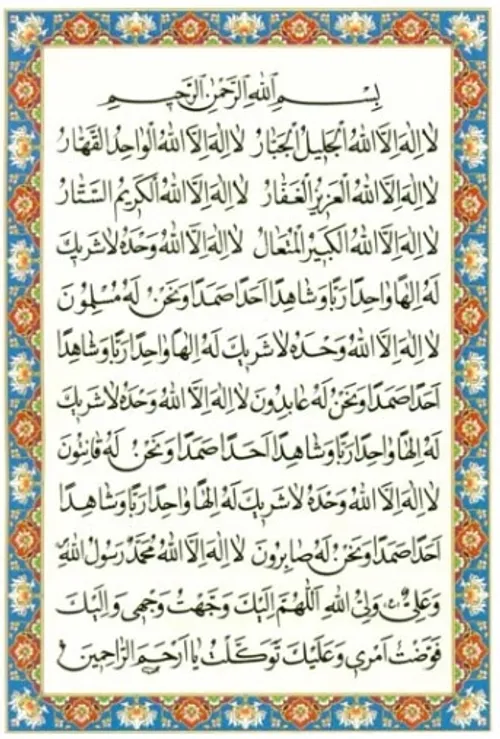 بِسْمِ ٱللهِ ٱلرَّحْمٰنِ ٱلرَّحِيمِ
لَا اِلٰهَ اِلَّا اللهُ الْجَلِيلُ الْجَبَّارُ لَا اِلٰهَ اِلَّا اللهُ الْوَاحِدُ الْقَهَّارُ
لَا اِلٰهَ اِلَّا اللهُ الْعَزِيزُ الْغَفَّارُ لَا اِلٰهَ اِلَّا اللهُ الْكَرِيمُ السَّتَّارُ
لَا اِلٰهَ اِلَّا اللهُ الْكَبِيرُ الْمُتَعَالُ لَا اِلٰهَ اِلَّا اللهُ وَحْدَهُ لَا شَرِيكَ
لَهُ اِلٰهًا وَاحِدًا رَبًّا وَشَاهِدًا اَحَدًا صَمَدًا وَنَحْنُ لَهُ مُسْلِمُونَ
لَا اِلٰهَ اِلَّا اللهُ وَحْدَهُ لَا شَرِيكَ لَهُ اِلٰهًا وَاحِدًا رَبًّا وَشَاهِدًا
اَحَدًا صَمَدًا وَنَحْنُ لَهُ عَابِدُونَ لَا اِلٰهَ اِلَّا اللهُ وَحْدَهُ لَا شَرِيكَ
لَهُ اِلٰهًا وَاحِدًا رَبًّا وَشَاهِدًا اَحَدًا صَمَدًا وَنَحْنُ لَهُ قَانِتُونَ
لَا اِلٰهَ اِلَّا اللهُ وَحْدَهُ لَا شَرِيكَ لَهُ اِلٰهًا وَاحِدًا رَبًّا وَشَاهِدًا
اَحَدًا صَمَدًا وَنَحْنُ لَهُ صَابِرُونَ لَا اِلٰهَ اِلَّا اللهُ مُحَمَّدٌ رَسُولُ اللهِ
وَعَلِيٌّ وَلِيُّ اللهِ اَللّٰهُمَّ اِلَيْكَ وَجَّهْتُ وَجْهِى وَاِلَيْكَ
فَوَّضْتُ اَمْرِى وَعَلَيْكَ تَوَكَّلْتُ يَا اَرْحَمَ الرَّاحِمِينَ